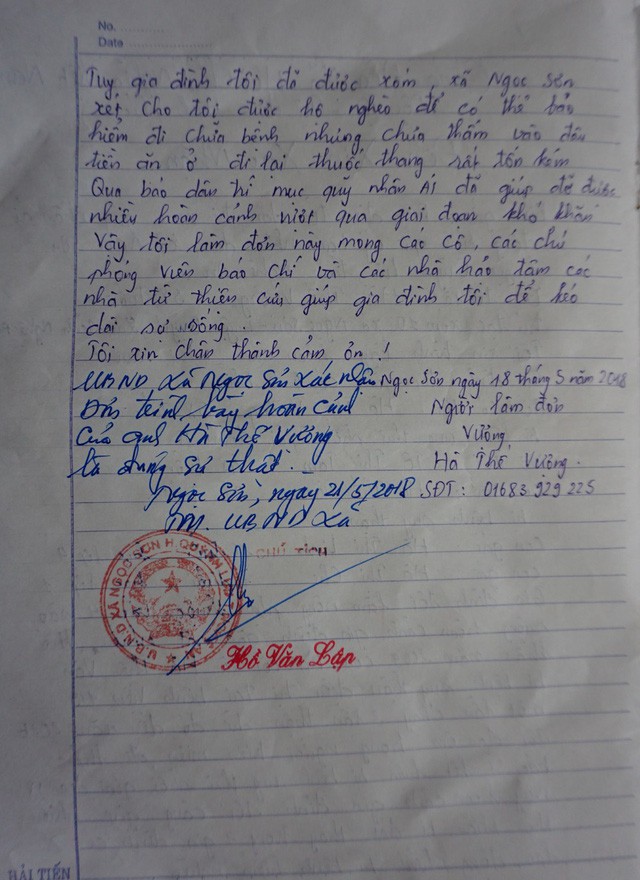 No.
Date
Tuy gia đình tôi đã được xóm, xã Ngọc Sơn
xét cho tôi được hộ nghèo để có thẻ bảo
hiểm đi chữa bệnh nhưng chưa thấm vào đâu
tiền ăn ở đi lại thuốc thang rất tốn kém
Qua báo dân trí mục quỹ nhân Ái đã giúp đỡ được
nhiều hoàn cảnh vượt qua giai đoạn khó khăn
Vậy tôi làm đơn này mong các cô, các chú
phóng viên báo chí và các nhà hảo tâm các
nhà từ thiện cứu giúp gia đình tôi để kéo
dài sự sống.
Tôi xin chân thành cảm ơn!
UBND xã Ngọc Sơn xác nhận
Đơn trình bày hoàn cảnh
Của anh Hà Thế Vương
là đúng sự thật.
Ngọc Sơn, ngày 21/5/2018
TM. UBND xã
Ngọc Sơn ngày 18 tháng 5 năm 2018
Người làm đơn
Vương
Hà Thế Vương.
SĐT: 01683 929 225
CHỦ TỊCH
U.B.N.D XÃ NGỌC SƠN H. QUỲNH
Hồ Văn Lập
HẢI TIẾN